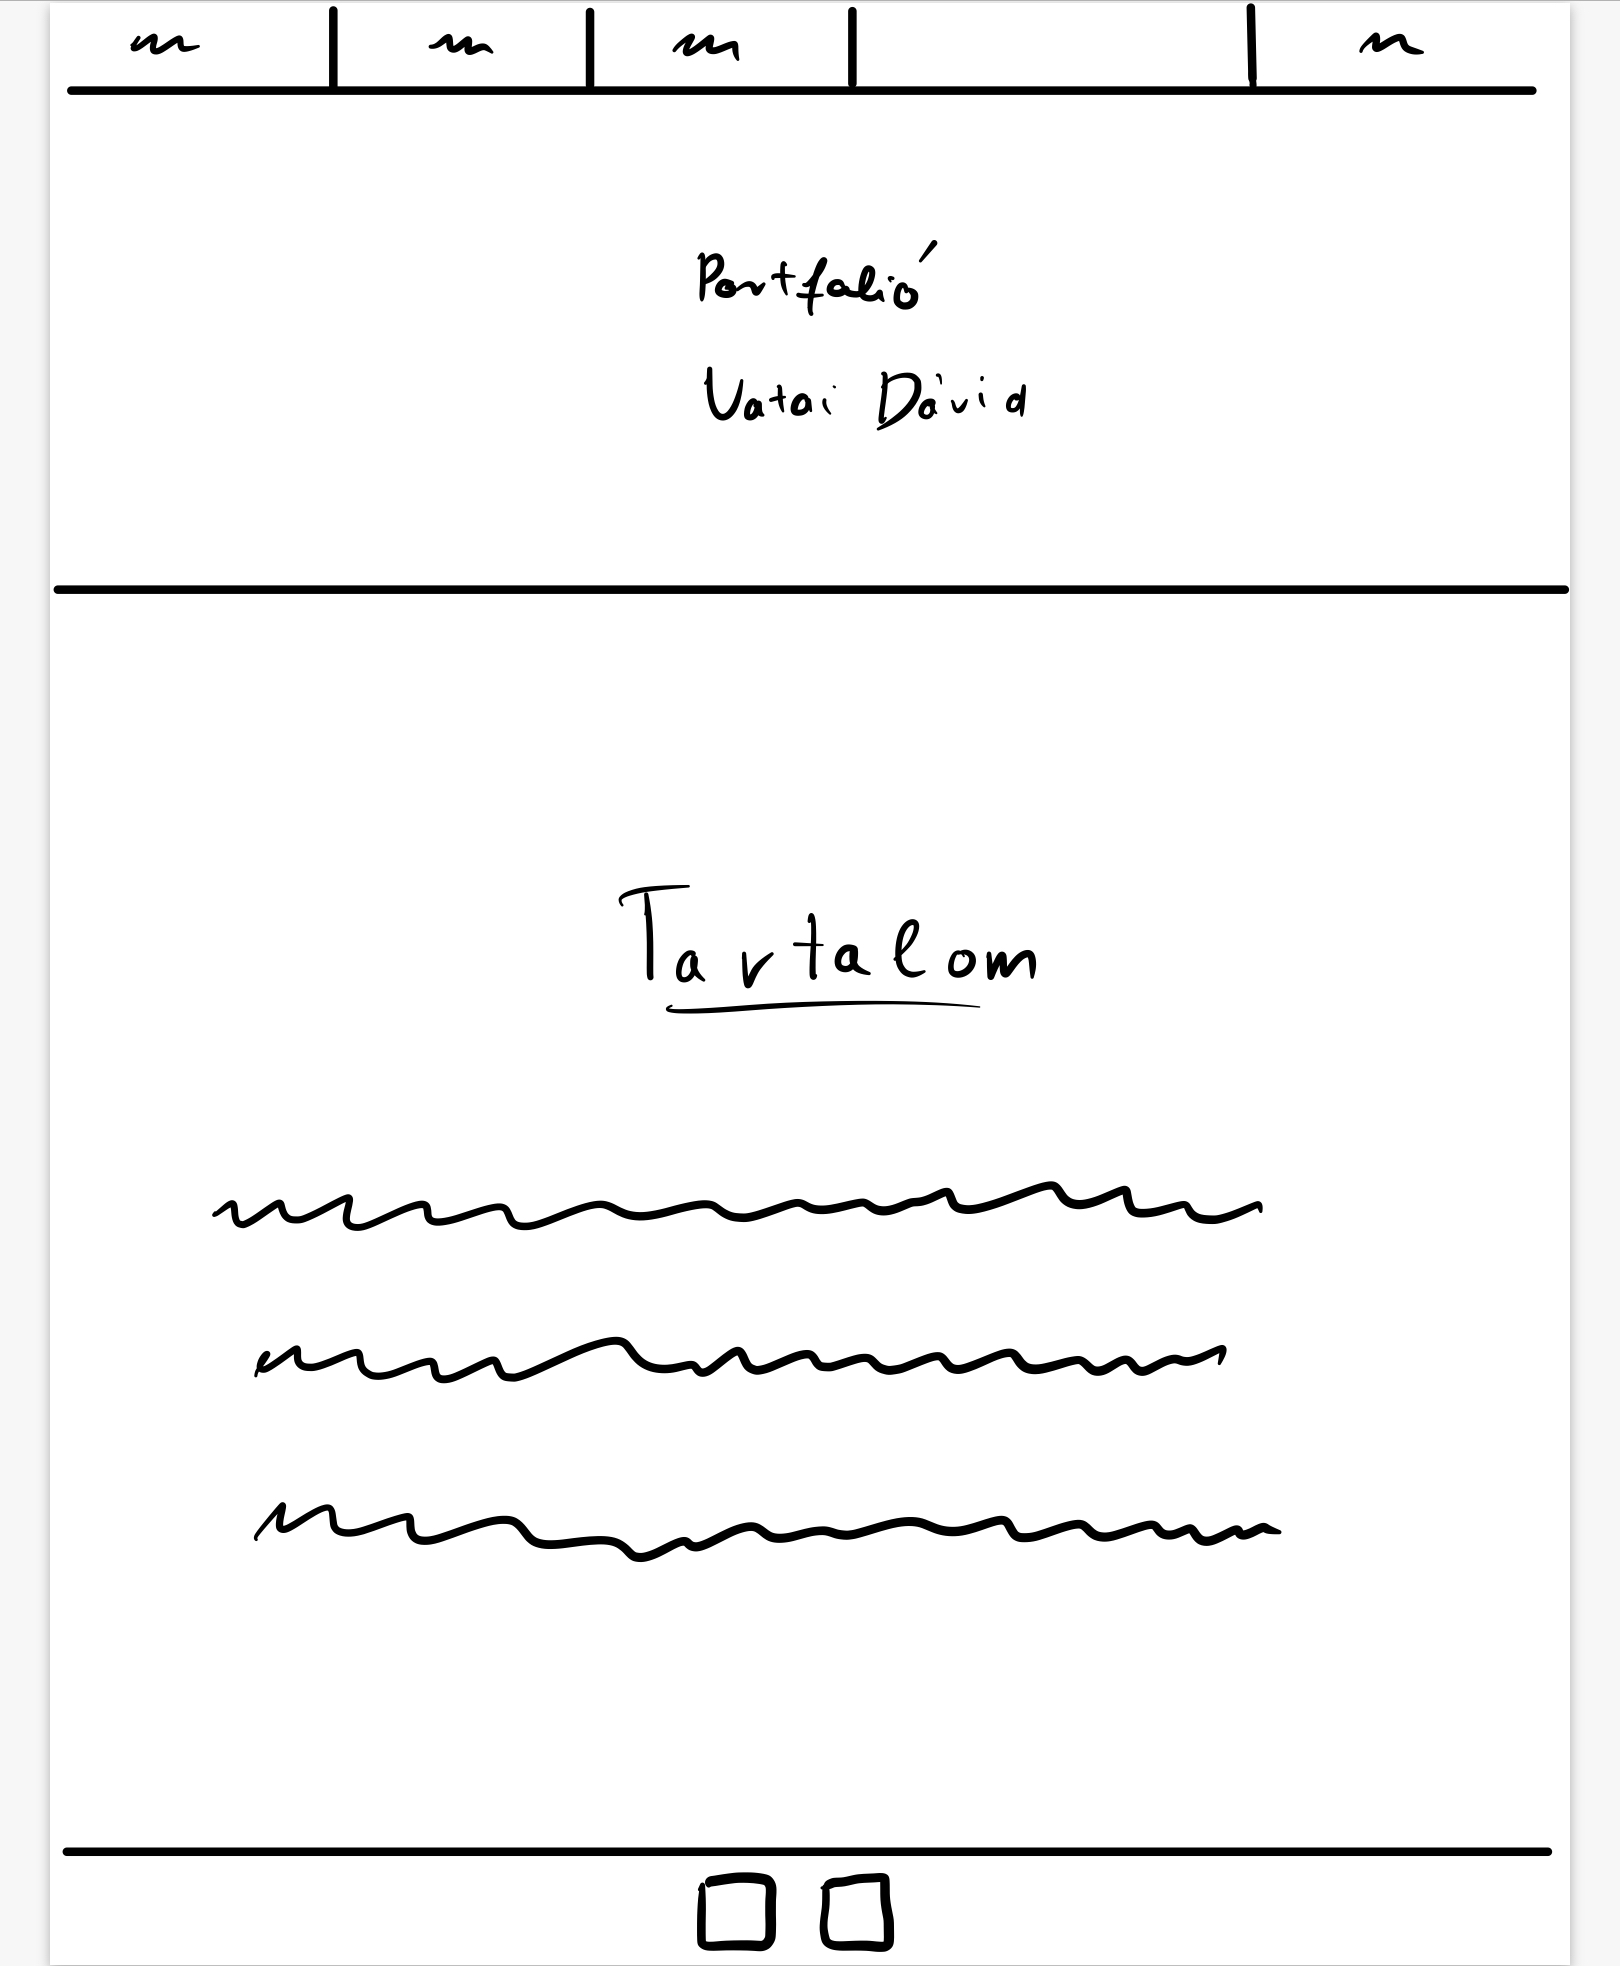 Portfalió
Vatai Dávid
Tartalom